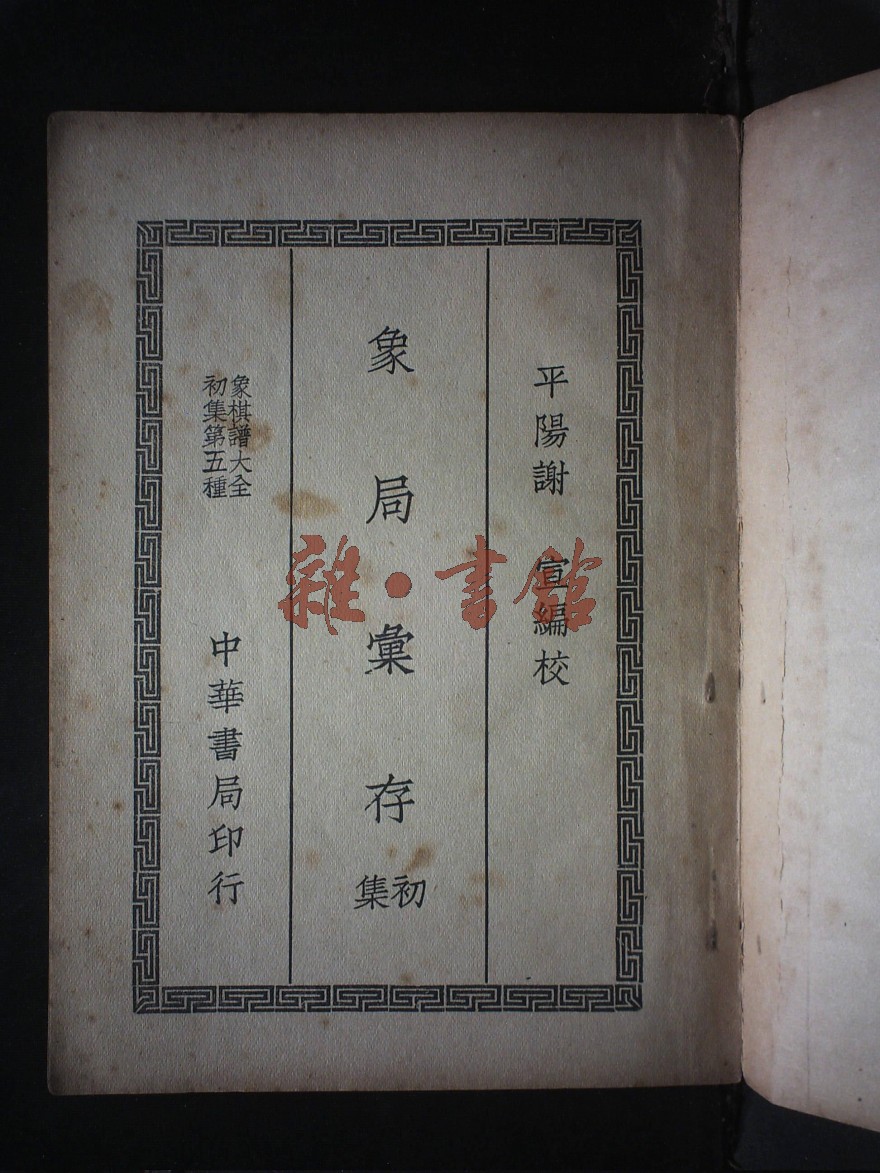 平陽謝 宣編校
象局彙存初集
象棋譜大全
初集第五種
中華書局印行
雜·書館